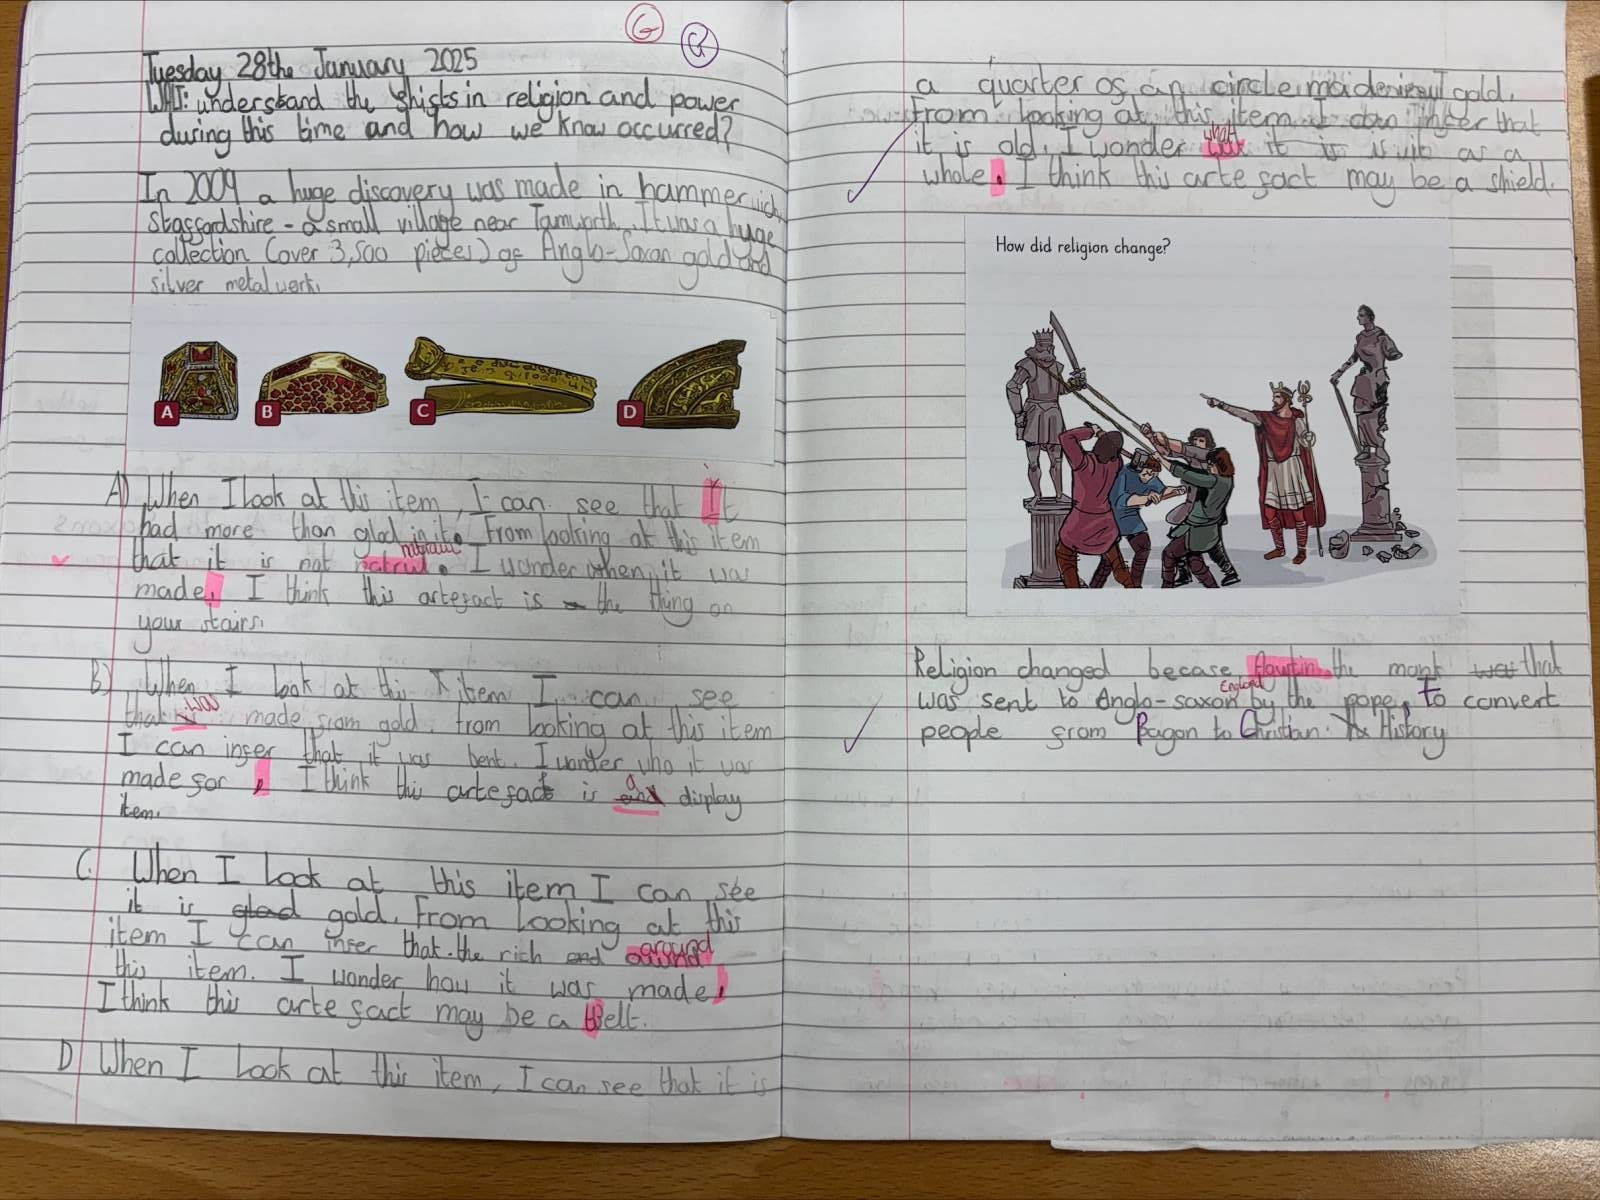 G
G
Tuesday 28th January 2025
WALT: understand the shifts in religion and power
during this time and how we know occurred?
In 2009 a huge discovery was made in hammerwich
Staffordshire - a small village near Tamworth. It was a huge
collection (over 3,500 pieces) of Anglo-Saxon gold and
silver metalwork.
A
B
C
D
A) When I look at this item, I can see that It
had more than glod in it. From looking at this item
that it is not natraul. I wonder when it was
made. I think this artefact is the thing on
your stairs.
B) When I look at this item I can see
that was made from gold. from looking at this item
I can infer that it was bent. I wonder who it was
made for. I think this artefact is a display
item.
C. When I look at this item I can see
it is glod gold. From looking at this
item I can infer that the rich and around
this item. I wonder how it was made.
I think this artefact may be a Belt.
D When I look at this item, I can see that it is
a quarter of an circle made gold.
From looking at this item I can infer that
it is old. I wonder what it is as a
whole. I think this artefact may be a shield.
How did religion change?
Religion changed becase the monk that
was sent to Anglo-saxon England by the pope, To convert
people from Pagon to Christian. History